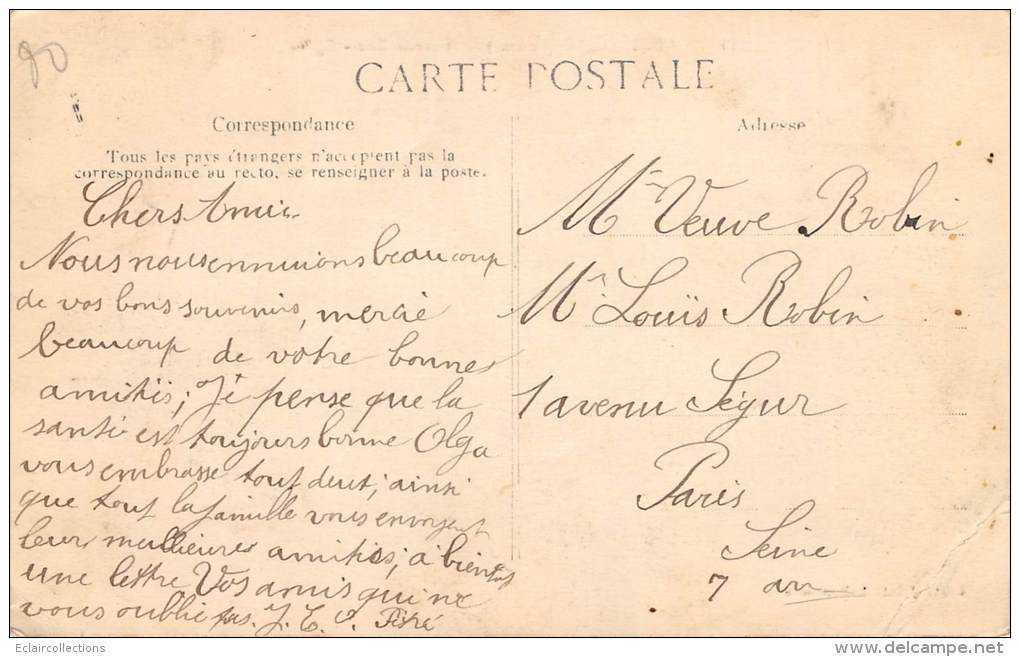 80
CARTE POSTALE
Correspondance
Tous les pays étrangers n'acceptent pas la
correspondance au recto, se renseigner à la poste.
Chers Amis
Nous nous ennuions beaucoup
de vos bons souvenirs, mercie
beaucoup de votre bonnes
amitiés; Je pense que la
santé est toujours bonne Olga
vous embrasse tout deut; ainsi
que tout la famille vous envoyent
leur meillieures amitiés; a bientot
une lettre Vos amis qui ne
vous oublie pas. J. C.
Adresse
Mme Veuve Robin
Mr Louïs Robin
1 avenu Ségur
Paris
Seine
7 arr
Eclaircollections
www.delcampe.net